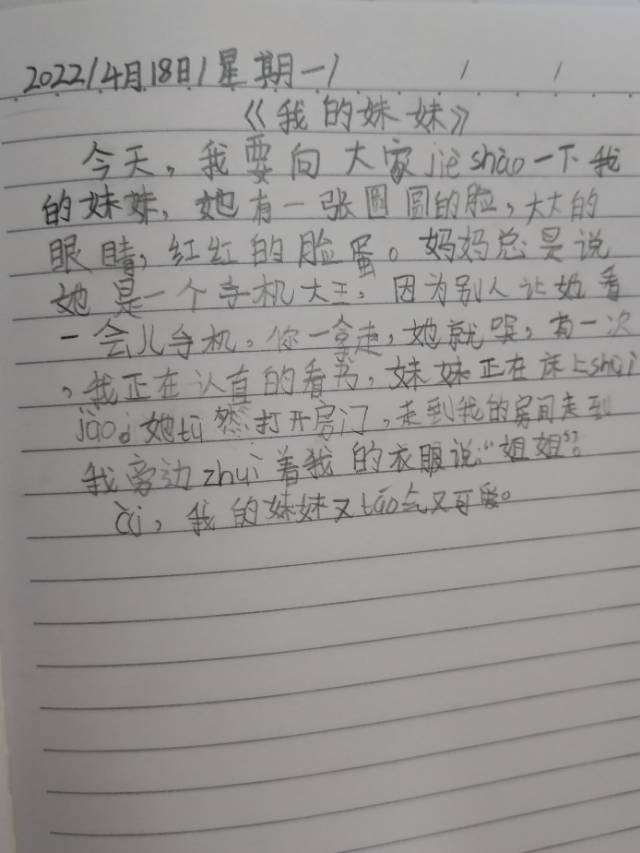 2022/4月18日/星期一/
《我的妹妹》
今天，我要向大家jiè shào一下我
的妹妹，她有一张圆圆的脸，大大的
眼睛，红红的脸蛋。妈妈总是说
她是一个手机大王，因为别人让她看
一会儿手机。你一拿走，她就哭，有一次
，我正在认真的看书，妹妹正在床上shuì
jiào，她tū然打开房门，走到我的房间走到
我旁边zhuì着我的衣服说：“姐姐”？
ài，我的妹妹又táo气又可爱。